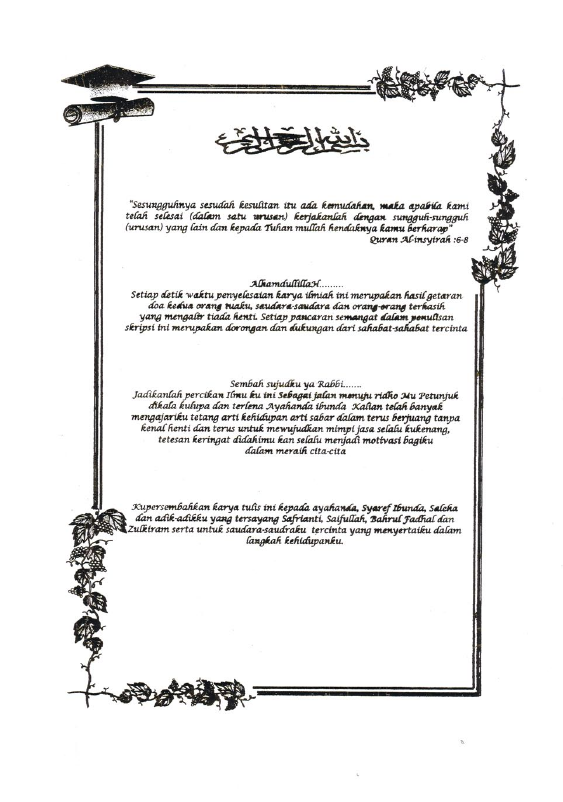 بسم الله الرحمن الرحيم
"Sesungguhnya sesudah kesulitan itu ada kemudahan, maka apabila kami
telah selesai (dalam satu urusan) kerjakanlah dengan sungguh-sungguh
(urusan) yang lain dan kepada Tuhan mullah hendaknya kamu berharap"
Quran Al-insyirah :6-8
AlhamdulillaH.........
Setiap detik waktu penyelesaian karya ilmiah ini merupakan hasil getaran
doa kedua orang tuaku, saudara-saudara dan orang-orang terkasih
yang mengalir tiada henti. Setiap pancaran semangat dalam penulisan
skripsi ini merupakan dorongan dan dukungan dari sahabat-sahabat tercinta
Sembah sujudku ya Rabbi.......
Jadikanlah percikan Ilmu ku ini Sebagai jalan menuju ridho Mu Petunjuk
dikala kulupa dan terlena Ayahanda ibunda Kalian telah banyak
mengajariku tetang arti kehidupan arti sabar dalam terus berjuang tanpa
kenal henti dan terus untuk mewujudkan mimpi jasa selalu kukenang,
tetesan keringat didahimu kan selalu menjadi motivasi bagiku
dalam meraih cita-cita
Kupersembahkan karya tulis ini kepada ayahanda, Syaref Ibunda, Saleha
dan adik-adikku yang tersayang Safrianti, Saifullah, Bahrul Fadhal dan
Zulkiram serta untuk saudara-saudraku tercinta yang menyertaiku dalam
langkah kehidupanku.